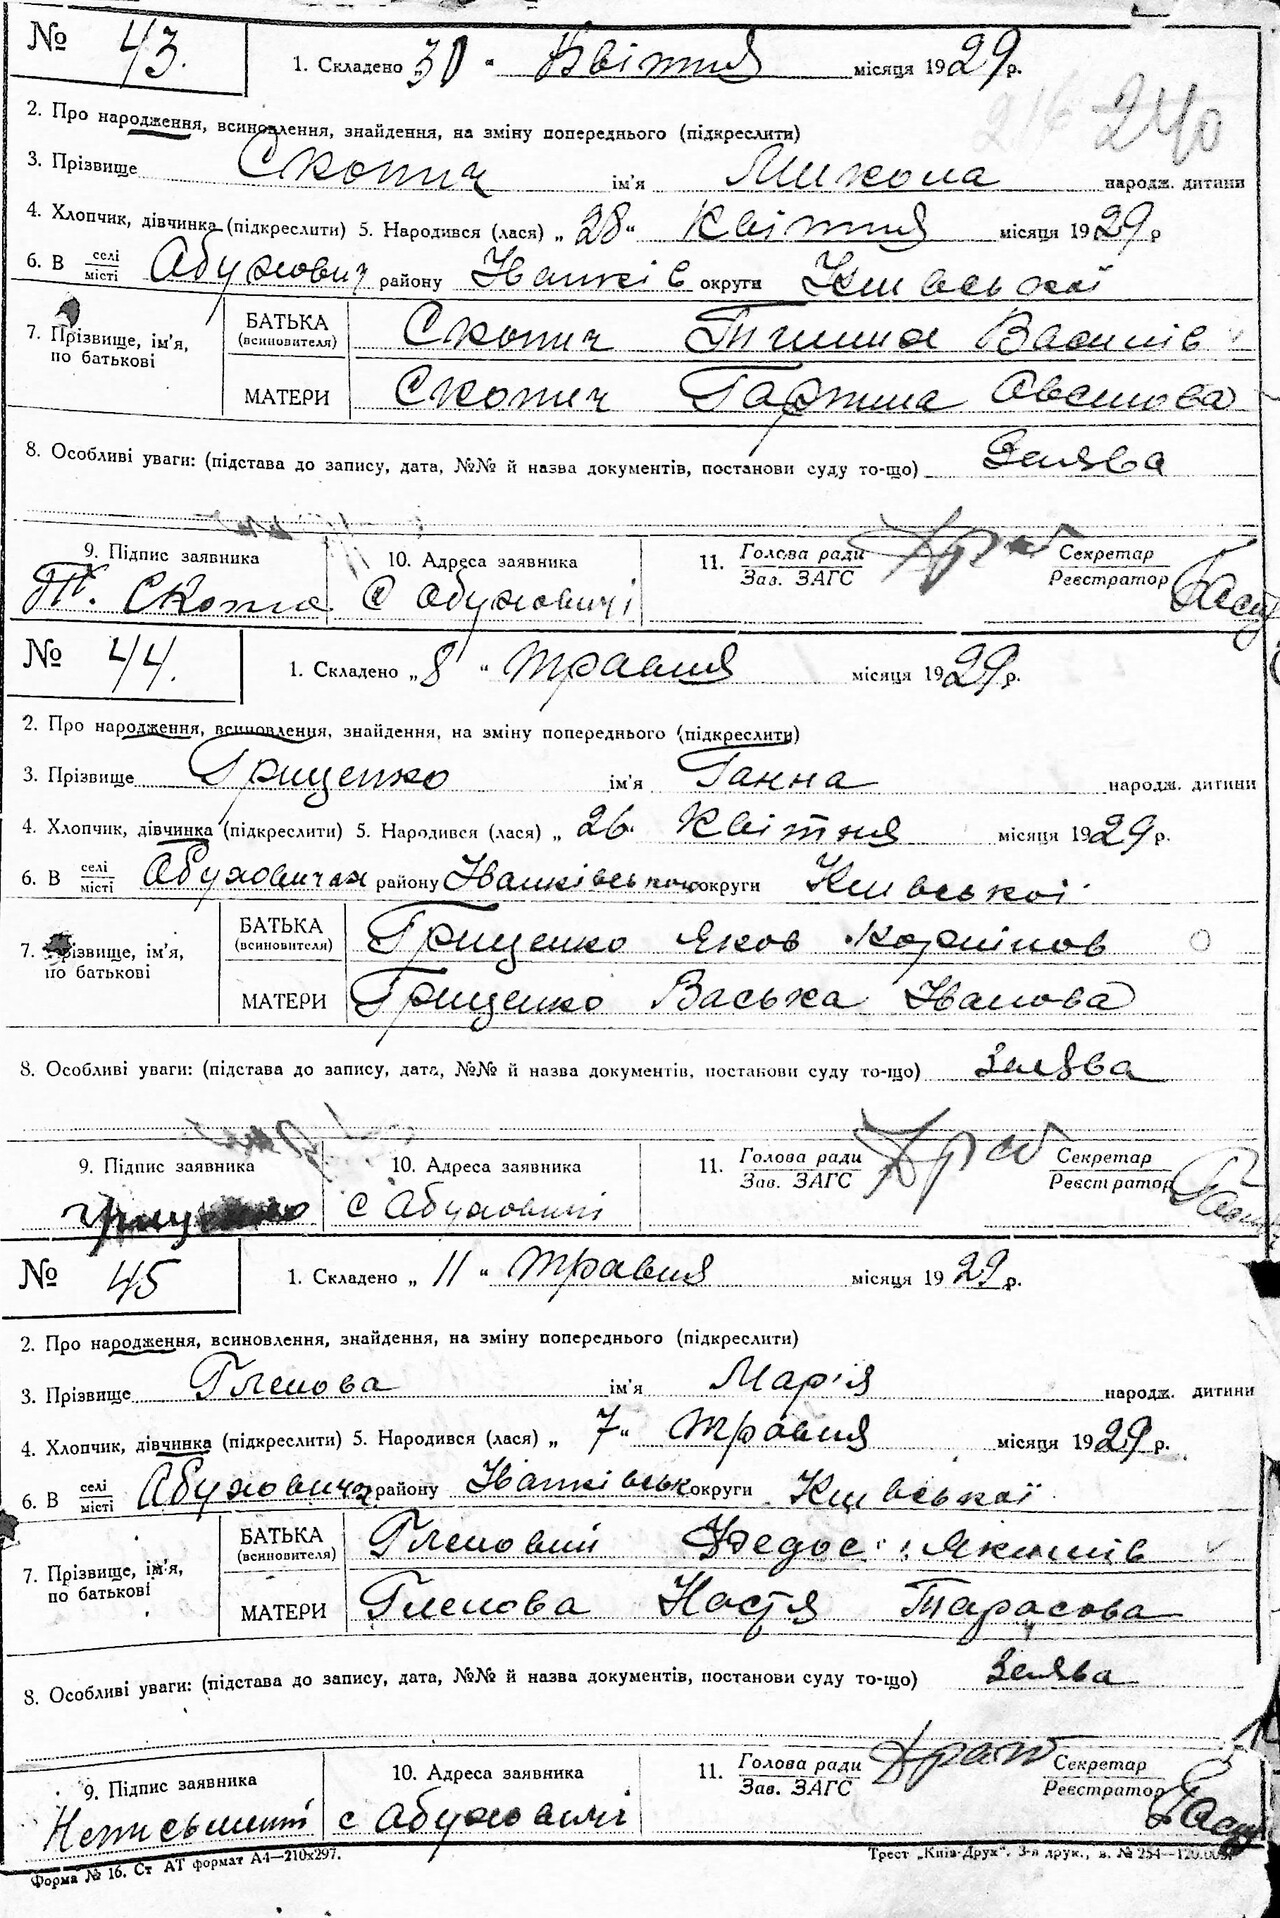 № 43. 1. Складено 30 " Квітня місяця 1929 р.
216 240
2. Про народження, всиновлення, знайдення, на зміну попереднього (підкреслити)
3. Прізвище Скопич ім'я Микола народж. дитини
4. Хлопчик, дівчинка (підкреслити) 5. Народився (лася) „ 28 " Квітня місяця 1929 р
6. В селі місті Абухович району Іванків округи Київської
7. Прізвище, ім'я, по батькові БАТЬКА (всиновителя) Скопич Тимиш Василів
МАТЕРИ Скопич Гартина Овсиова
8. Особливі уваги: (підстава до запису, дата, №№ й назва документів, постанови суду то-що) Заява
9. Підпис заявника 10. Адреса заявника 11. Голова ради Зав. ЗАГС Секретар Реєстратор
с Абуховичі
№ 44. 1. Складено „ 8 " травня місяця 1929 р.
2. Про народження, всиновлення, знайдення, на зміну попереднього (підкреслити)
3. Прізвище Грищенко ім'я Ганна народж. дитини
4. Хлопчик, дівчинка (підкреслити) 5. Народився (лася) „ 26. Квітня місяця 1929 р.
6. В селі місті Абуховичах району Іванківської округи Київської
7. Прізвище, ім'я, по батькові БАТЬКА (всиновителя) Грищенко Яков Корніков
МАТЕРИ Грищенко Васька Іванова
8. Особливі уваги: (підстава до запису, дата, №№ й назва документів, постанови суду то-що) Заява
9. Підпис заявника 10. Адреса заявника 11. Голова ради Зав. ЗАГС Секретар Реєстратор
Грищенко с Абуховичі
№ 45 1. Складено „ 11 " травня місяця 1929 р.
2. Про народження, всиновлення, знайдення, на зміну попереднього (підкреслити)
3. Прізвище Гленова ім'я Мар'я народж. дитини
4. Хлопчик, дівчинка (підкреслити) 5. Народився (лася) „ 7 " травня місяця 1929 р.
6. В селі місті Абуховичах району Іванківськ округи Київської
7. Прізвище, ім'я, по батькові БАТЬКА (всиновителя) Гленовий Федос Якимів
МАТЕРИ Гленова Настя Тарасова
8. Особливі уваги: (підстава до запису, дата, №№ й назва документів, постанови суду то-що) Заява
9. Підпис заявника 10. Адреса заявника 11. Голова ради Зав. ЗАГС Секретар Реєстратор
Неписьмені с Абуховичі
Форма № 16. Ст АТ формат А4—210х297. Трест „Київ-Друк". 3-я друк., в. № 254—120.00